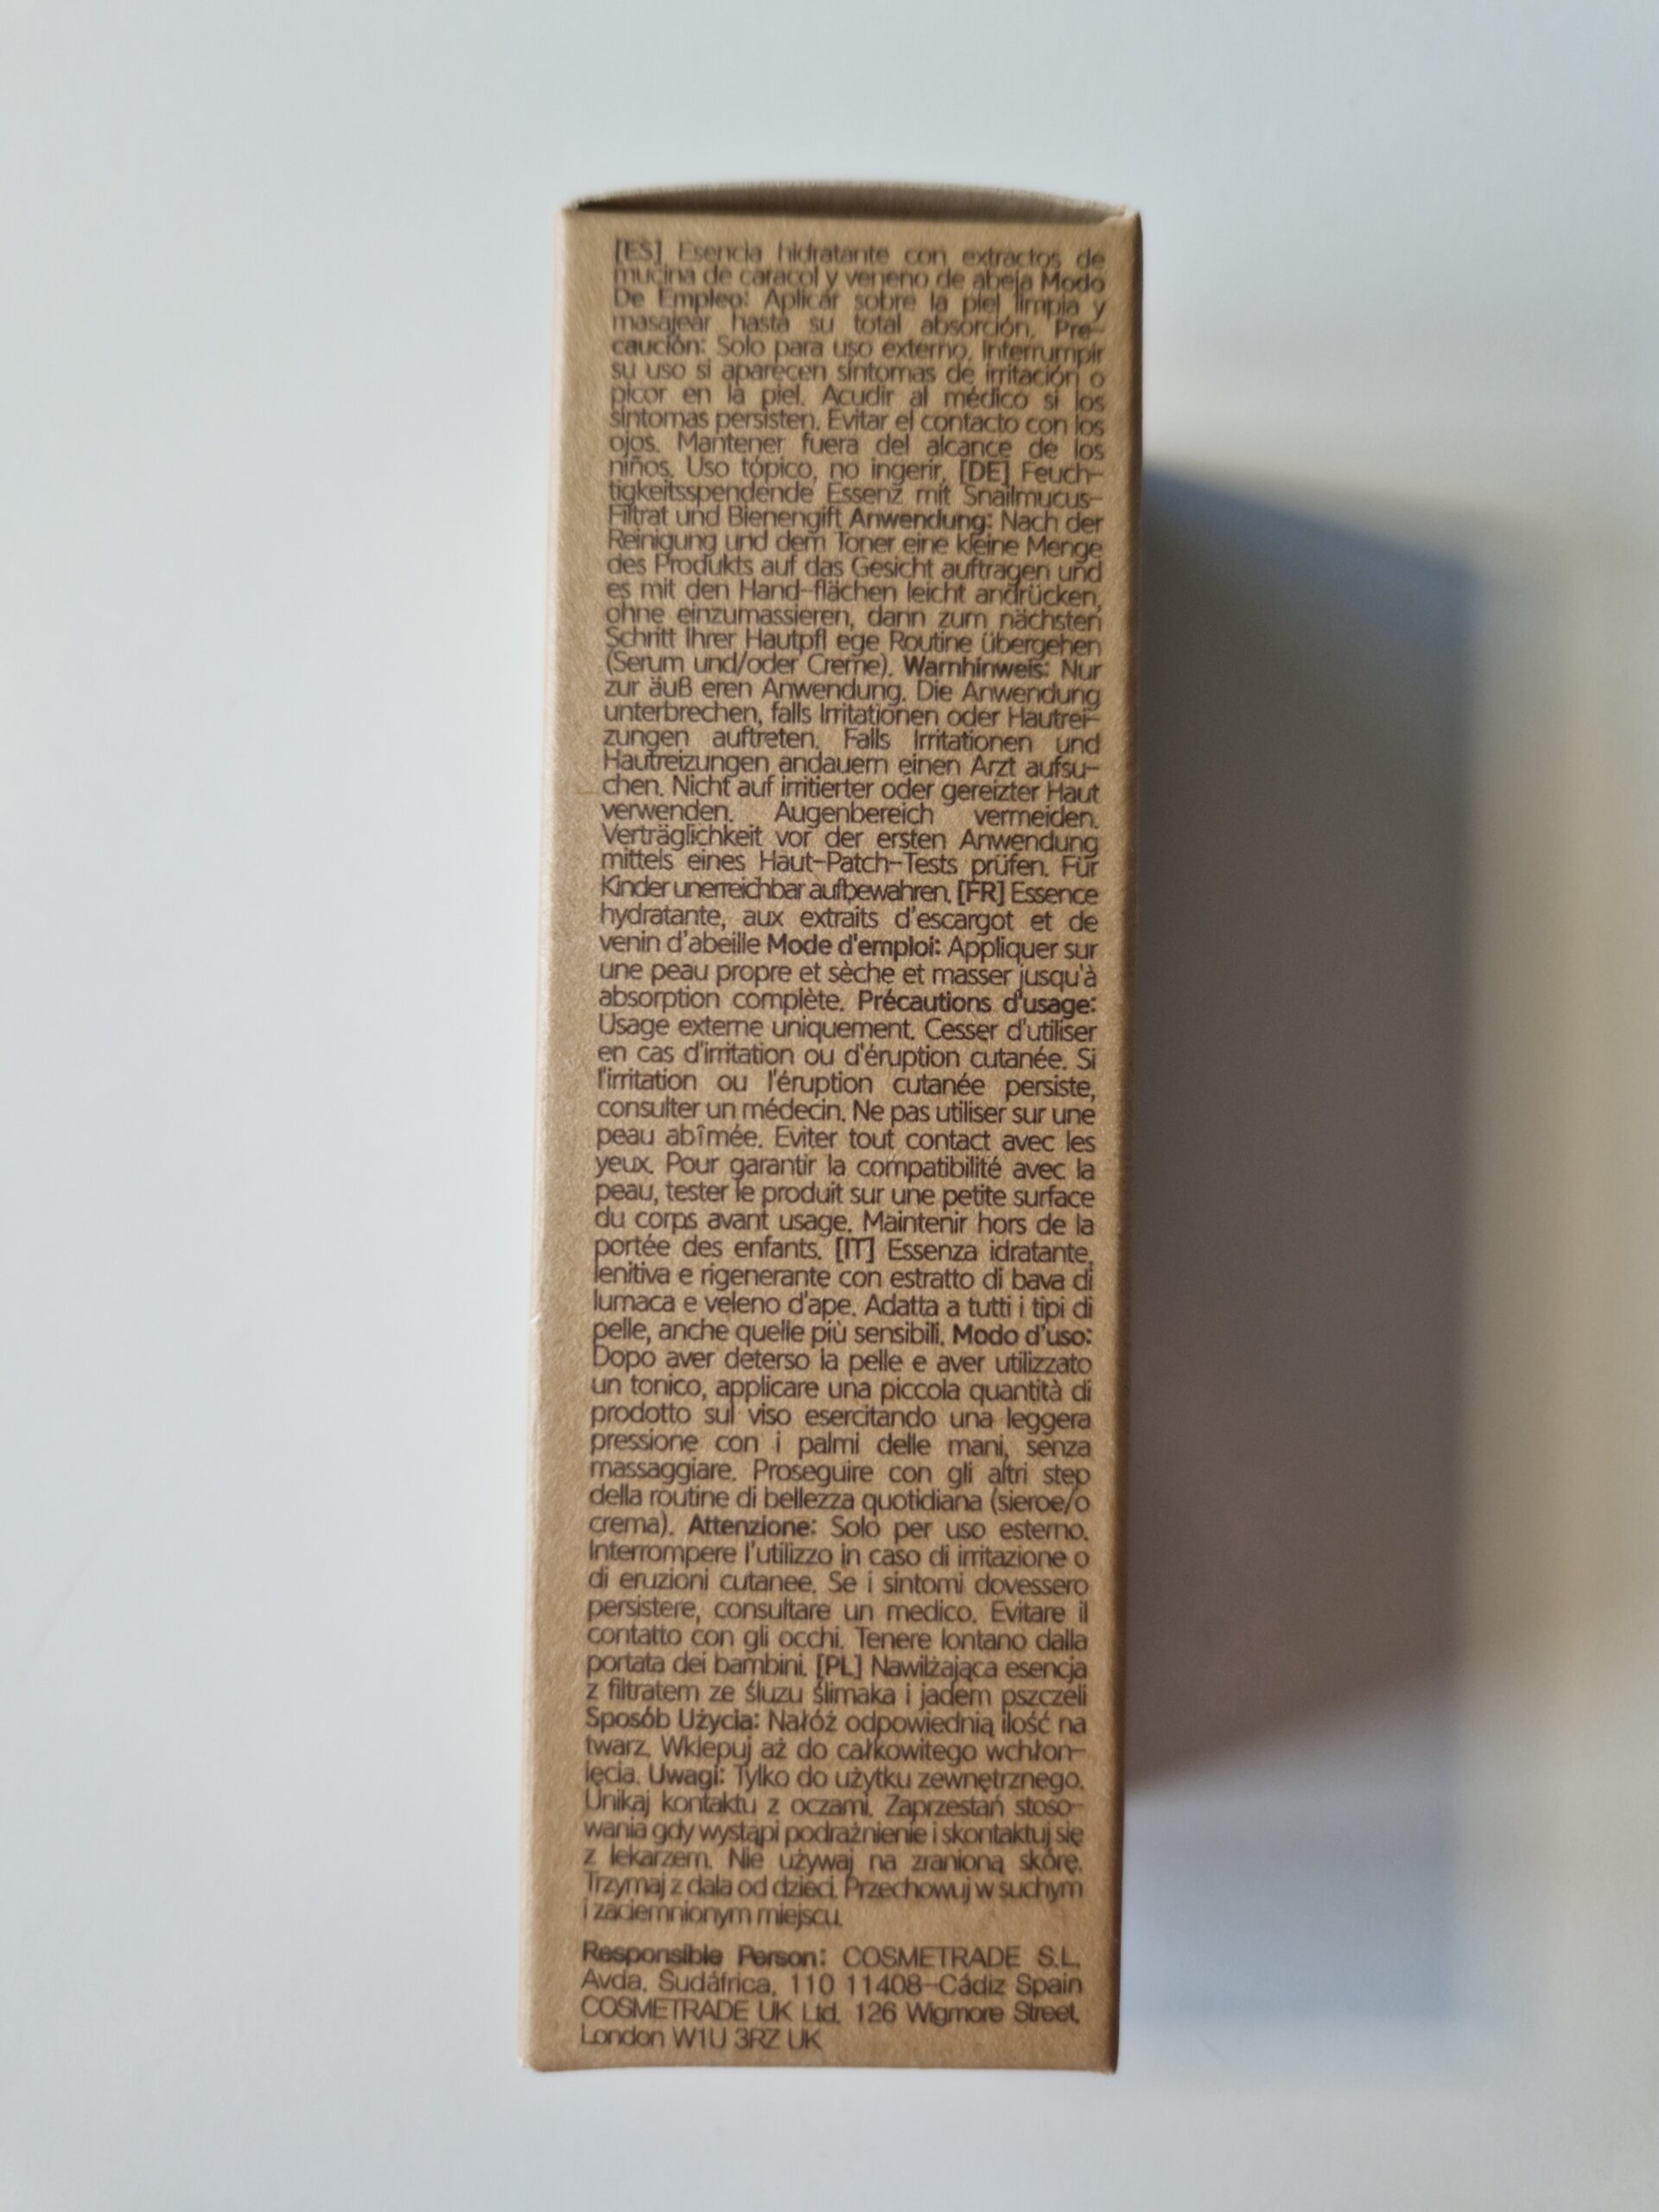 [ES] Esencia hidratante con extractos de
mucina de caracol y veneno de abeja Modo
De Empleo: Aplicar sobre la piel limpia y
masajear hasta su total absorción. Pre-
caución: Solo para uso externo. Interrumpir
su uso si aparecen síntomas de irritación o
picor en la piel. Acudir al médico si los
síntomas persisten. Evitar el contacto con los
ojos. Mantener fuera del alcance de los
niños. Uso tópico, no ingerir. [DE] Feuch-
tigkeitsspendende Essenz mit Snailmucus-
Filtrat und Bienengift Anwendung: Nach der
Reinigung und dem Toner eine kleine Menge
des Produkts auf das Gesicht auftragen und
es mit den Hand-flächen leicht andrücken,
ohne einzumassieren, dann zum nächsten
Schritt Ihrer Hautpfl ege Routine übergehen
(Serum und/oder Creme). Warnhinweis: Nur
zur äuß eren Anwendung. Die Anwendung
unterbrechen, falls Irritationen oder Hautrei-
zungen auftreten. Falls Irritationen und
Hautreizungen andauern einen Arzt aufsu-
chen. Nicht auf irritierter oder gereizter Haut
verwenden. Augenbereich vermeiden.
Verträglichkeit vor der ersten Anwendung
mittels eines Haut-Patch-Tests prüfen. Für
Kinder unerreichbar aufbewahren. [FR] Essence
hydratante, aux extraits d'escargot et de
venin d'abeille Mode d'emploi: Appliquer sur
une peau propre et sèche et masser jusqu'à
absorption complète. Précautions d'usage:
Usage externe uniquement. Cesser d'utiliser
en cas d'irritation ou d'éruption cutanée. Si
l'irritation ou l'éruption cutanée persiste,
consulter un médecin. Ne pas utiliser sur une
peau abîmée. Eviter tout contact avec les
yeux. Pour garantir la compatibilité avec la
peau, tester le produit sur une petite surface
du corps avant usage. Maintenir hors de la
portée des enfants. [IT] Essenza idratante,
lenitiva e rigenerante con estratto di bava di
lumaca e veleno d'ape. Adatta a tutti i tipi di
pelle, anche quelle più sensibili. Modo d'uso:
Dopo aver deterso la pelle e aver utilizzato
un tonico, applicare una piccola quantità di
prodotto sul viso esercitando una leggera
pressione con i palmi delle mani, senza
massaggiare. Proseguire con gli altri step
della routine di bellezza quotidiana (sieroe/o
crema). Attenzione: Solo per uso esterno.
Interrompere l'utilizzo in caso di irritazione o
di eruzioni cutanee. Se i sintomi dovessero
persistere, consultare un medico. Evitare il
contatto con gli occhi. Tenere lontano dalla
portata dei bambini. [PL] Nawilżająca esencja
z filtratem ze śluzu ślimaka i jadem pszczeli
Sposób Użycia: Nałóż odpowiednią ilość na
twarz. Wklepuj aż do całkowitego wchłon-
ięcia. Uwagi: Tylko do użytku zewnętrznego.
Unikaj kontaktu z oczami. Zaprzestań stoso-
wania gdy wystąpi podrażnienie i skontaktuj się
z lekarzem. Nie używaj na zranioną skórę.
Trzymaj z dala od dzieci. Przechowuj w suchym
i zaciemnionym miejscu.
Responsible Person: COSMETRADE S.L.
Avda. Sudáfrica, 110 11408-Cádiz Spain
COSMETRADE UK Ltd. 126 Wigmore Street,
London W1U 3RZ UK